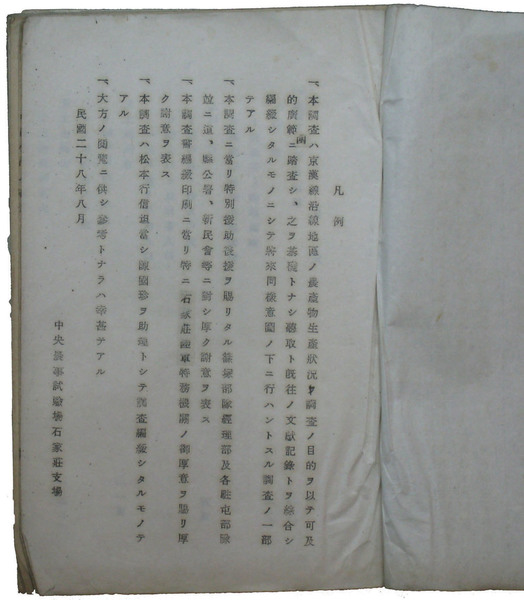 凡例
一、本調査ハ京漢線沿線地區ノ農產物生產狀況ヲ調査ノ目的ヲ以テ可及
的廣範囲ニ踏査シ、之ヲ基礎トナシ聽取ト既往ノ文献記錄トヲ綜合シ
編纂シタルモノニシテ將來同樣意圖ノ下ニ行ハントスル調査ノ一部
テアル
一、本調査ニ當リ特別援助 ヲ賜リタル 部隊經理部及各駐屯部隊
竝ニ道、縣公署、新民會等ニ對シ厚ク謝意ヲ表ス
一、本調査書 印刷ニ當リ特ニ石家莊陸軍特務機關ノ御厚意ヲ賜リ厚
ク謝意ヲ表ス
一、本調査ハ松本行信擔當シ ヲ助 トシテ調査編纂シタルモノテ
アル
一、大方ノ閱覽ニ供シ參考トナラハ幸甚テアル
民國二十八年八月
中央農事試驗場石家莊支場